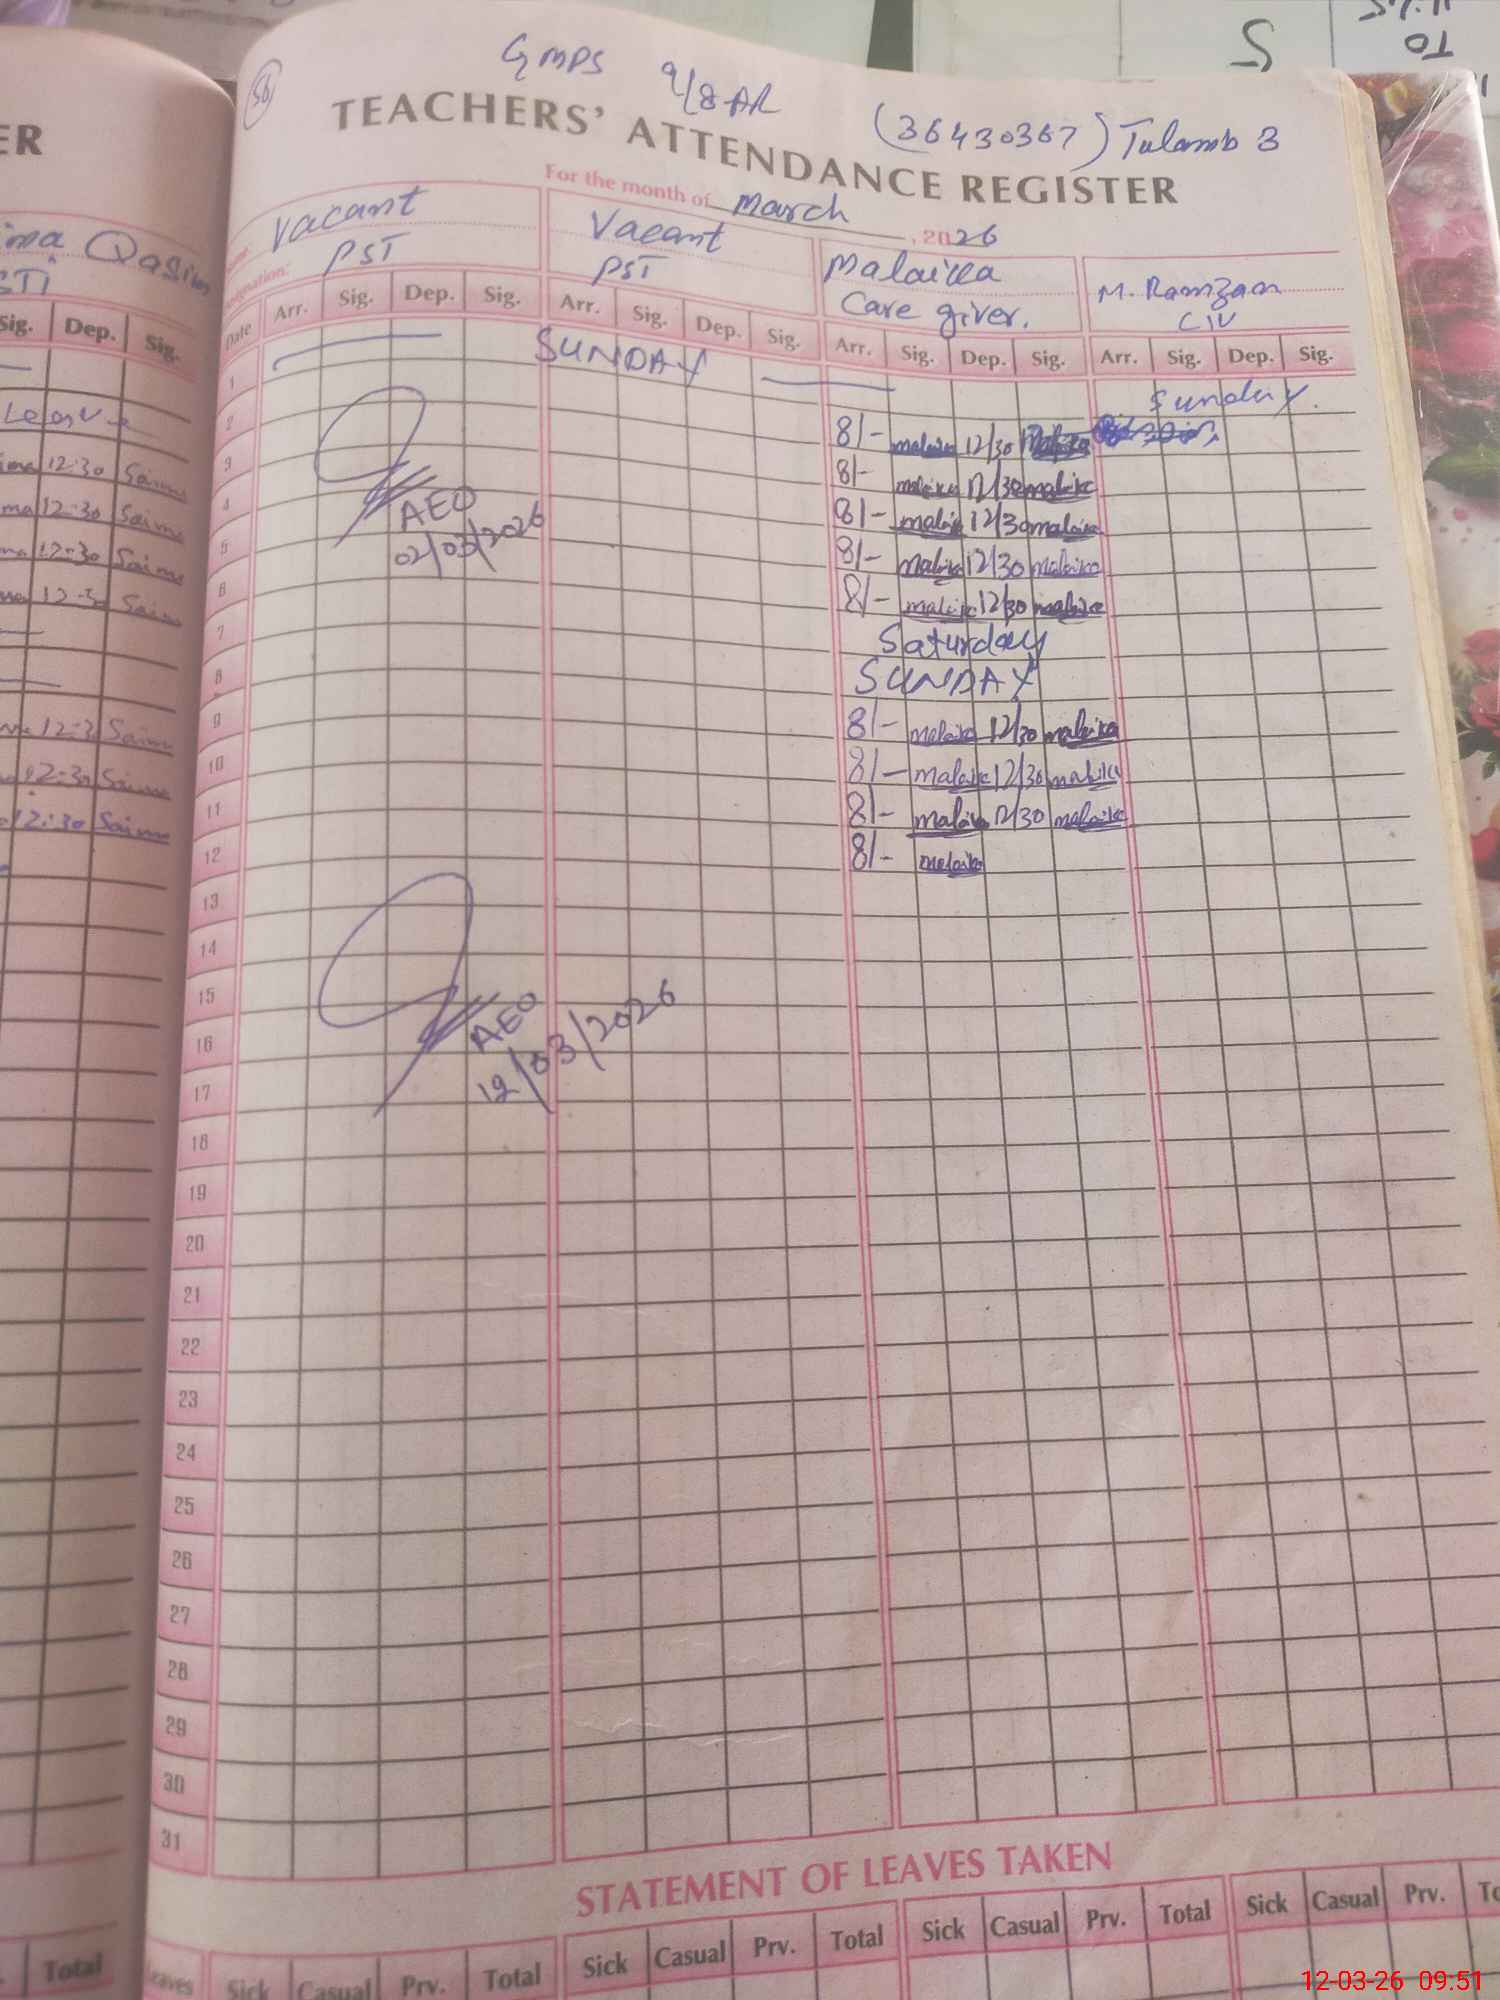 56
GMPS 9/8-AR
(36430367) Tulamb 3
TEACHERS' ATTENDANCE REGISTER
For the month of March, 2026
Vacant Vacant Malaikla M. Ramzan
PST PST Care giver. CIV
Date Arr. Sig. Dep. Sig. Arr. Sig. Dep. Sig. Arr. Sig. Dep. Sig. Arr. Sig. Dep. Sig.
1 SUNDAY Sunday.
2 8/- malaika 12/30
3 8/- malaika 12/30 malaika
4 8/- malaika 12/30 malaika
5 8/- malaika 12/30 malaika
6 8/- malaika 12/30 malaika
AEO
02/03/2026
7 Saturday
8 SUNDAY
9 8/- malaika 12/30 malaika
10 8/- malaika 12/30 malaika
11 8/- malaika 12/30 malaika
12 8/- malaika
13
14
15
AEO
12/03/2026
16
17
18
19
20
21
22
23
24
25
26
27
28
29
30
31
STATEMENT OF LEAVES TAKEN
Sick Casual Prv. Total Sick Casual Prv. Total Sick Casual Prv. Total Sick Casual Prv.
ER
Qasim
Sig. Dep. Sig.
Leave
12:30 Saima
12:30 Saima
12:30 Saima
12:30 Saima
12:30 Saima
12:30 Saima
12:30 Saima
Total
12-03-26 09:51